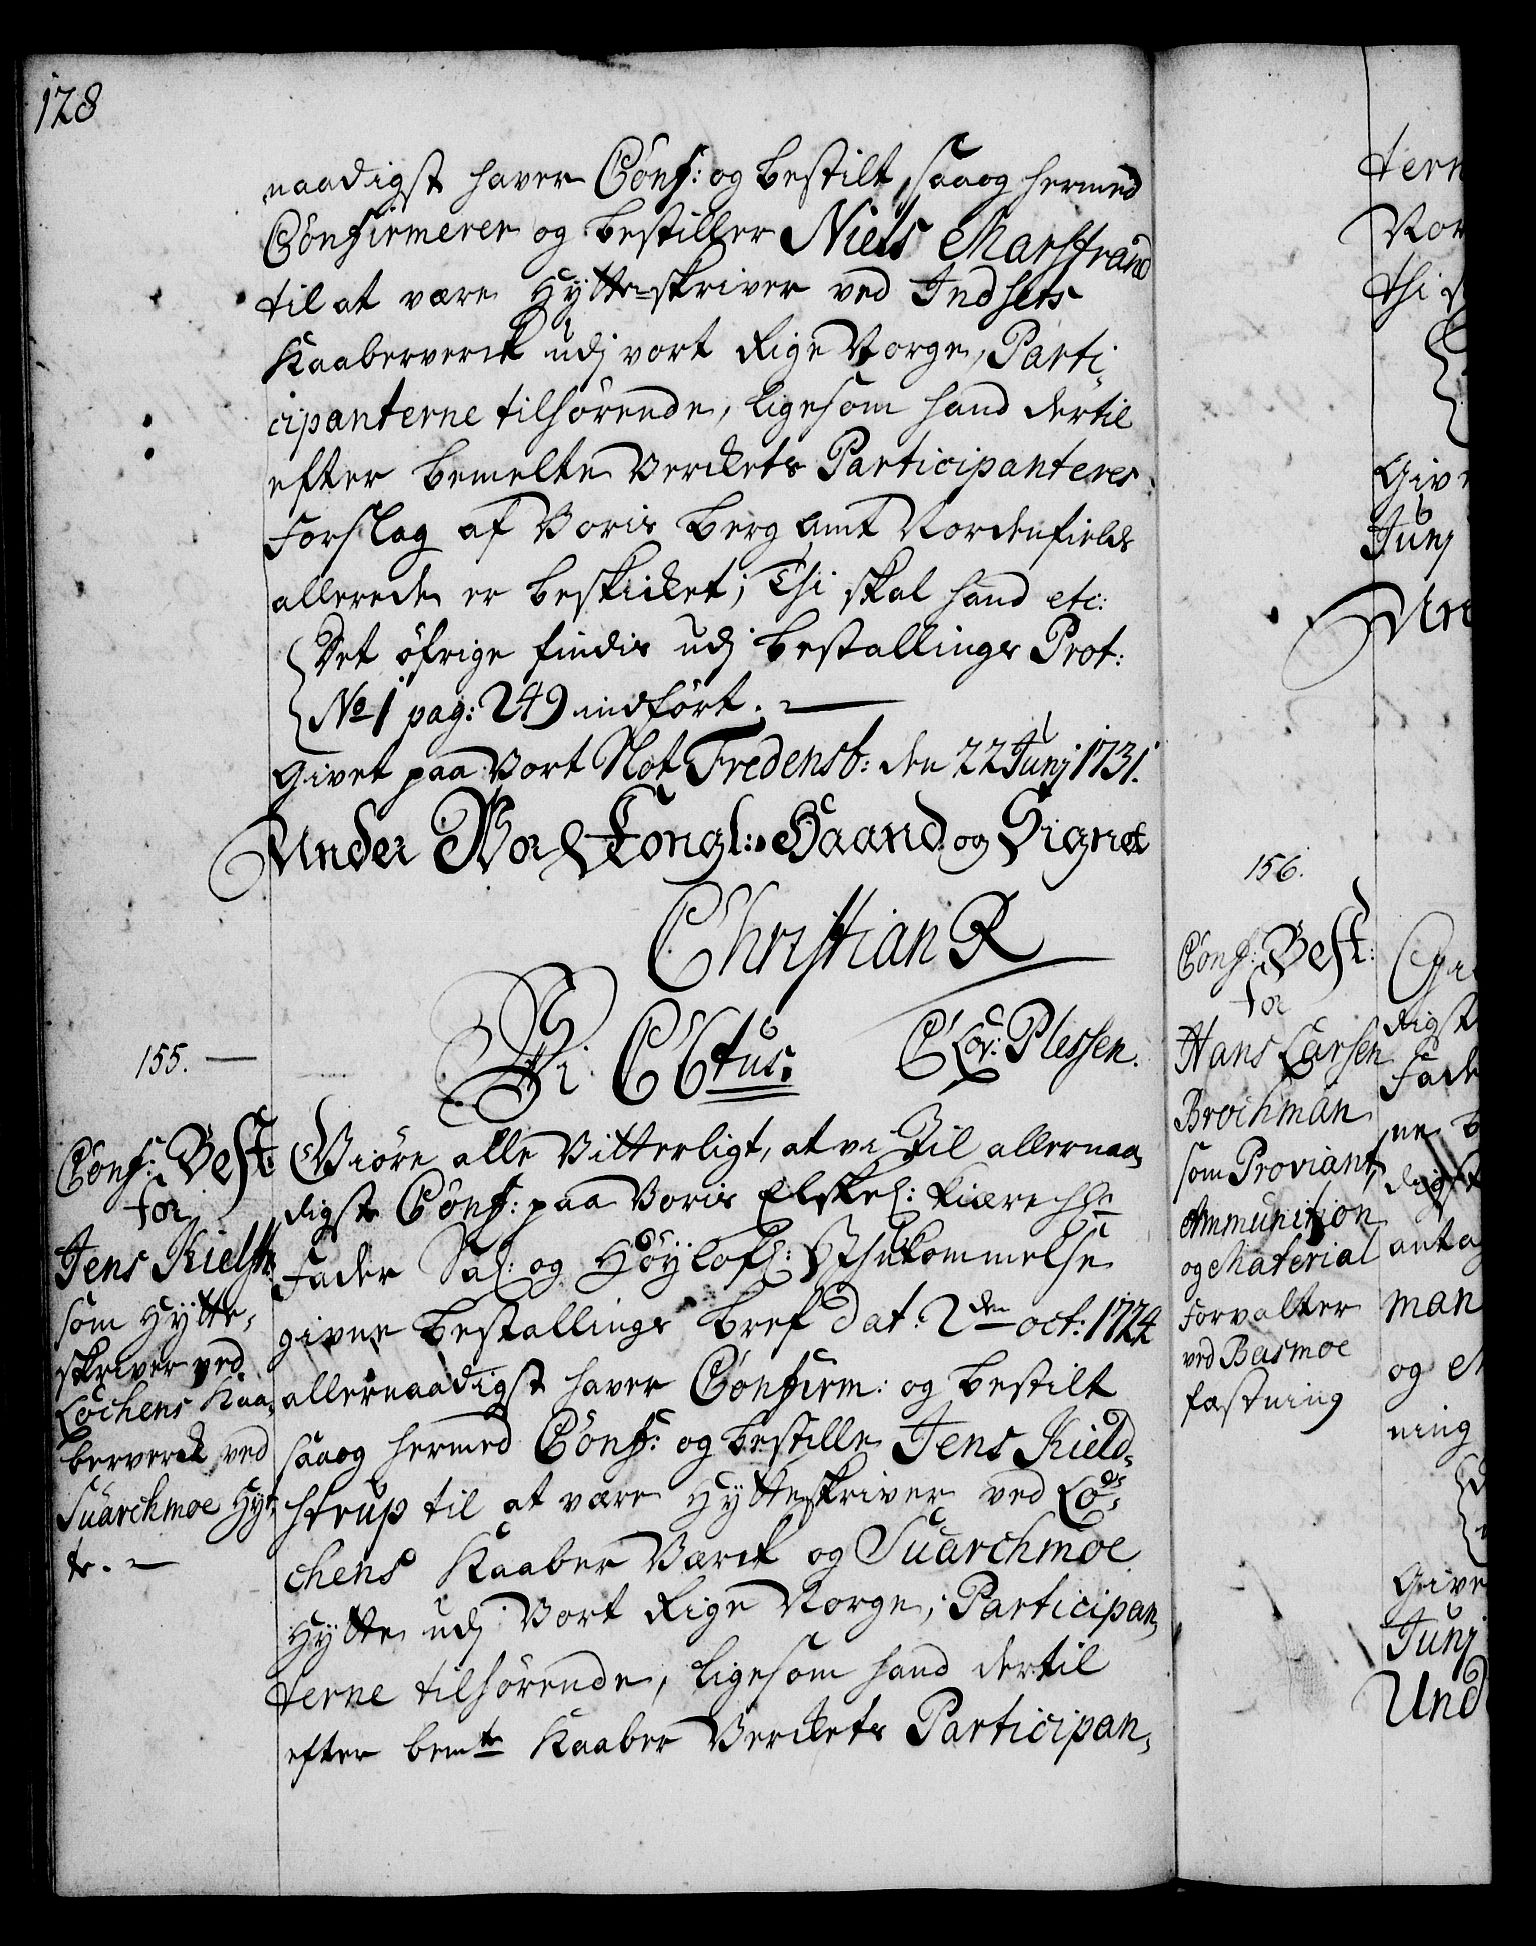 128
naadigst haver Conf: og bestilt, saaog hermed
Confirmerer og bestiller Niels Marstrand
til at være Hytte-skriver ved Indsets
Kaaberverck udj vort Rige Norge, Parti-
cipanterne tilhörende, ligesom hand dertil
efter bemelte Verckets Participanteres
Forslag af Voris Berg Amt Nordenfields
allerede er beskicket; Thi skal hand etc:
Det öfrige findis udj bestallings Prot:
No 1 pag: 249 indfört.
Givet paa Vort Slot Fredensb: den 22 Junj 1731.
Under Vor Kongl: Haand og Signet
Christian R
C Ad: Plessen.
155.
Conf: Best:
for
Jens Kielst:
som Hytte-
skriver ved
Löchens Kaa-
berverck ved
Suarchmoe Hyt-
te.
Giöre alle Vitterligt, at vi Til allernaa-
digste Conf: paa Voris Elskel: kiære Hr
Fader Sal: og Höylofl: Ihukommelse
givne bestallings bref dat: 2den oct: 1724
allernaadigst haver Confirm: og bestilt
saaog hermed Conf: og bestille Jens Kield-
strup til at være Hytteskriver ved Lö-
chens Kaaber Værck og Suarchmoe
Hytte udj Vort Rige Norge, Participan-
terne tilhörende, ligesom hand dertil
efter bemte Kaaber Verckets Participan-
156.
Conf: Best:
for
Hans Larsen
Brochman
som Proviant,
Ammunition
og Material
Forvalter
ved Basmoe
fæstning
tern
Nor
thi s
Give
Junj
Und
digst
Fade
ne b
digst
antag
man
og M
ning
Give
Junj
Und